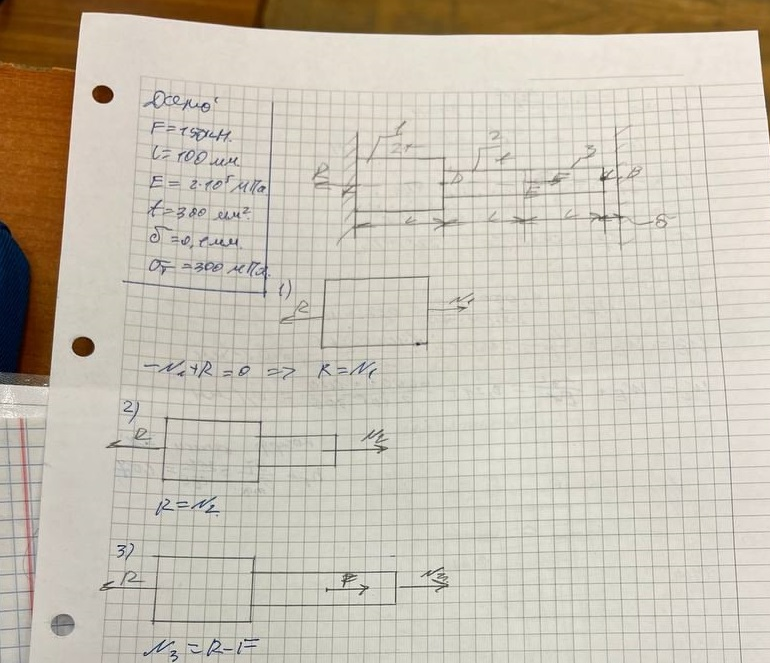 Дано:
F=150кН.
l=100 мм
E=2·10⁵ мПа
f=300 мм²
δ=0,1мм.
σт=300 мПа.
1 2 3
2f f
R D E F K B
L L L δ
1)
R N₁
-N₁+R=0 => R=N₁
2)
R N₂
R=N₂
3)
R F N₃
N₃=R-F